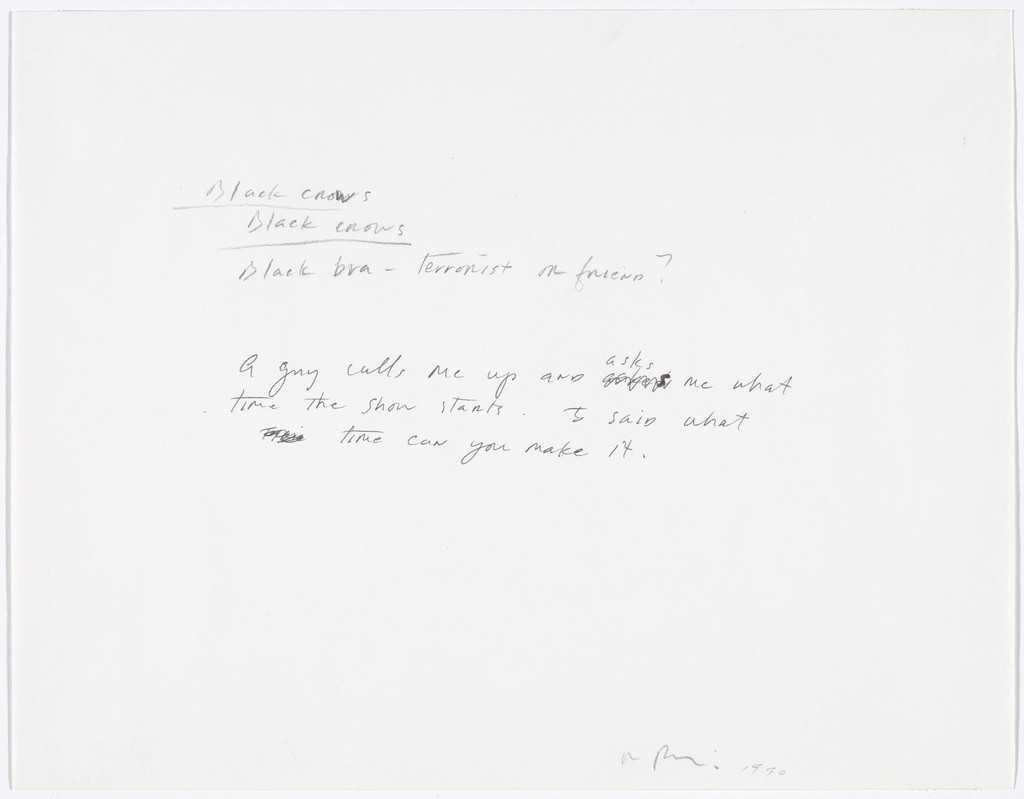 Black crows
Black crows
Black bra - terrorist or friend?
A guy calls me up and asks me what
time the show starts. I said what
time can you make it.
1990